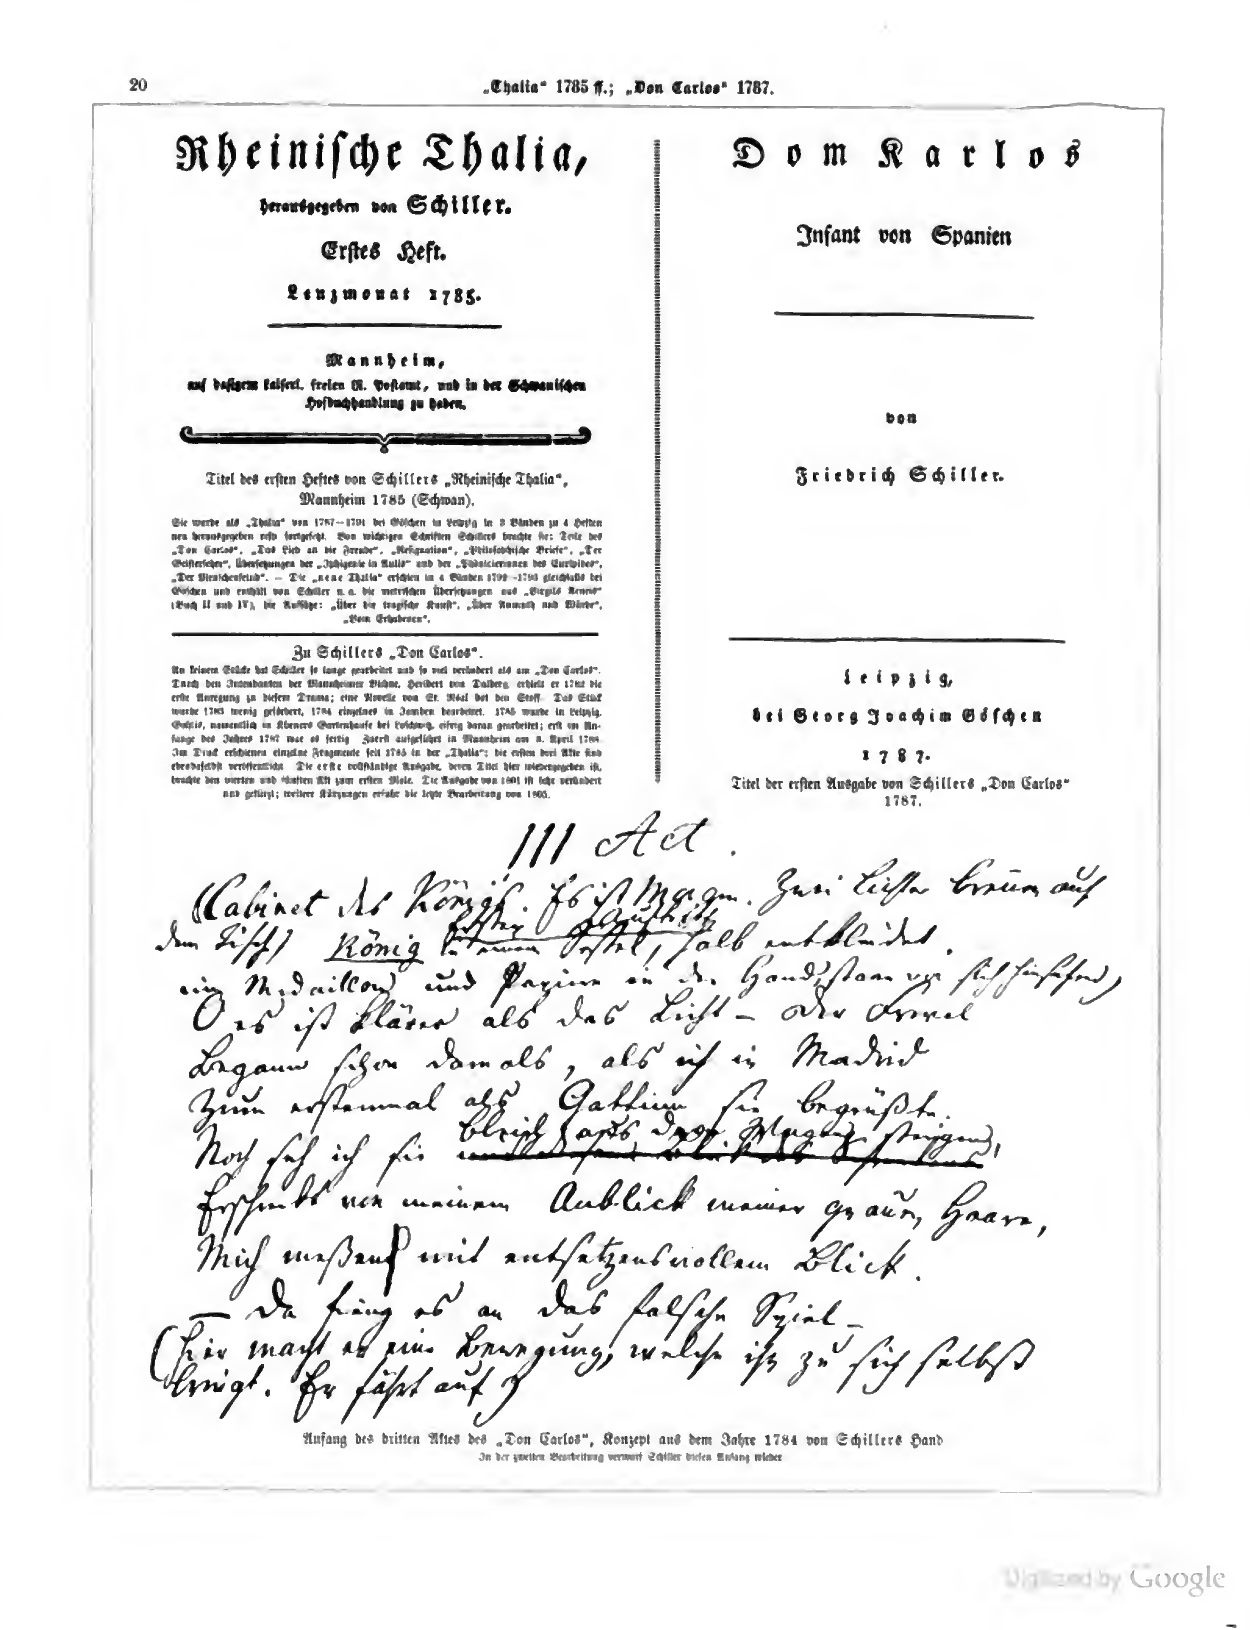 20
„Thalia“ 1785 ff.; „Don Carlos“ 1787.
Rheinische Thalia,
herausgegeben von Schiller.
Erstes Heft.
Lenzmonat 1785.
Mannheim,
auf dasigem kaiserl. freien R. Postamt, und in der Schwanischen
Hofbuchhandlung zu haben.
Titel des ersten Heftes von Schillers „Rheinische Thalia“,
Mannheim 1785 (Schwan).
Sie wurde als „Thalia“ von 1787–1791 bei Göschen in Leipzig in 3 Bänden zu 4 Heften
neu herausgegeben resp. fortgesetzt. Von wichtigen Schriften Schillers brachte sie: Teile des
„Don Carlos“, „Das Lied an die Freude“, „Resignation“, „Philosophische Briefe“, „Der
Geisterseher“, Übersetzungen der „Iphigenie in Aulis“ und der „Phönicierinnen des Euripides“,
„Der Menschenfeind“. – Die „neue Thalia“ erschien in 4 Bänden 1792–1793 gleichfalls bei
Göschen und enthält von Schiller u. a. die metrischen Übersetzungen aus „Virgils Aeneis“
(Buch II und IV), die Aufsätze: „Über die tragische Kunst“, „Über Anmuth und Würde“,
„Vom Erhabenen“.
Zu Schillers „Don Carlos“.
An keinem Stücke hat Schiller so lange gearbeitet und so viel verändert als am „Don Carlos“.
Durch den Intendanten der Mannheimer Bühne, Heribert von Dalberg, erhielt er 1782 die
erste Anregung zu diesem Drama; eine Novelle von St. Réal bot den Stoff. Das Stück
wurde 1783 wenig gefördert, 1784 einzelnes in Jamben bearbeitet. 1785 wurde in Leipzig,
Gohlis, namentlich in Körners Gartenhause bei Loschwitz, eifrig daran gearbeitet; erst im An-
fange des Jahres 1787 war es fertig. Zuerst aufgeführt in Mannheim am 8. April 1788.
Im Druck erschienen einzelne Fragmente seit 1785 in der „Thalia“; die ersten drei Akte sind
ebendaselbst veröffentlicht. Die erste vollständige Ausgabe, deren Titel hier wiedergegeben ist,
brachte den vierten und fünften Akt zum ersten Male. Die Ausgabe von 1801 ist sehr verändert
und gekürzt; weitere Kürzungen erfuhr die letzte Bearbeitung von 1805.
Dom Karlos
Infant von Spanien
von
Friedrich Schiller.
Leipzig,
bei Georg Joachim Göschen
1787.
Titel der ersten Ausgabe von Schillers „Don Carlos“
1787.
III Act.
(Cabinet des Königs. Es ist Morgen. Zwei Lichter brennen auf
Erster Auftritt
dem Tisch) König in einem Sessel, halb entkleidet.
ein Medaillon und Papiere in der Hand, starr vor sich hinsehend)
O es ist klärer als das Licht – der Frevel
Begann schon damals, als ich in Madrid
Zum erstenmal als Gattinn sie begrüßte.
bleich aus dem Wagen steigend,
Noch seh ich sie
Erschrekt von meinem Anblick meiner grauen Haare,
Mich meßend mit entsetzensvollem Blick.
— Da fieng es an das falsche Spiel –
(hier macht er eine Bewegung, welche ihn zu sich selbst
bringt. Er fährt auf)
Anfang des dritten Aktes des „Don Carlos“, Konzept aus dem Jahre 1784 von Schillers Hand
In der zweiten Bearbeitung verwarf Schiller diesen Anfang wieder
Digitized by Google